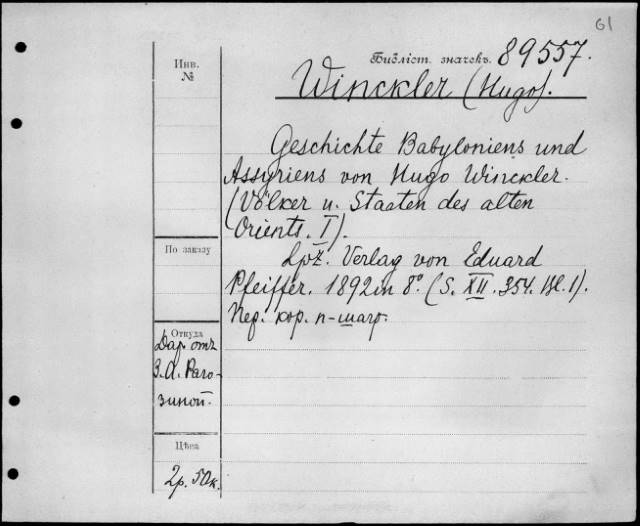 61
Библіот. значекъ. 89557.
Инв.
№
Winckler (Hugo).
Geschichte Babyloniens und
Assyriens von Hugo Winckler.
(Völker u. Staaten des alten
Orients. I).
Lpz. Verlag von Eduard
Pfeiffer. 1892 in 8º. (S. XII. 354. Bl. 1).
Пер. кор. п-шагр.
По заказу
Откуда
Дар. отъ
З. А. Раго-
зиной.
Цѣна
2р. 50к.